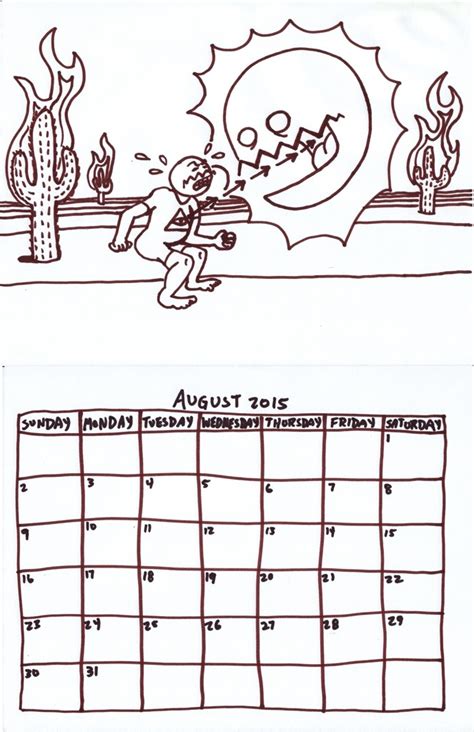 AUGUST 2015
SUNDAY MONDAY TUESDAY WEDNESDAY THURSDAY FRIDAY SATURDAY
1
2 3 4 5 6 7 8
9 10 11 12 13 14 15
16 17 18 19 20 21 22
23 24 25 26 27 28 29
30 31